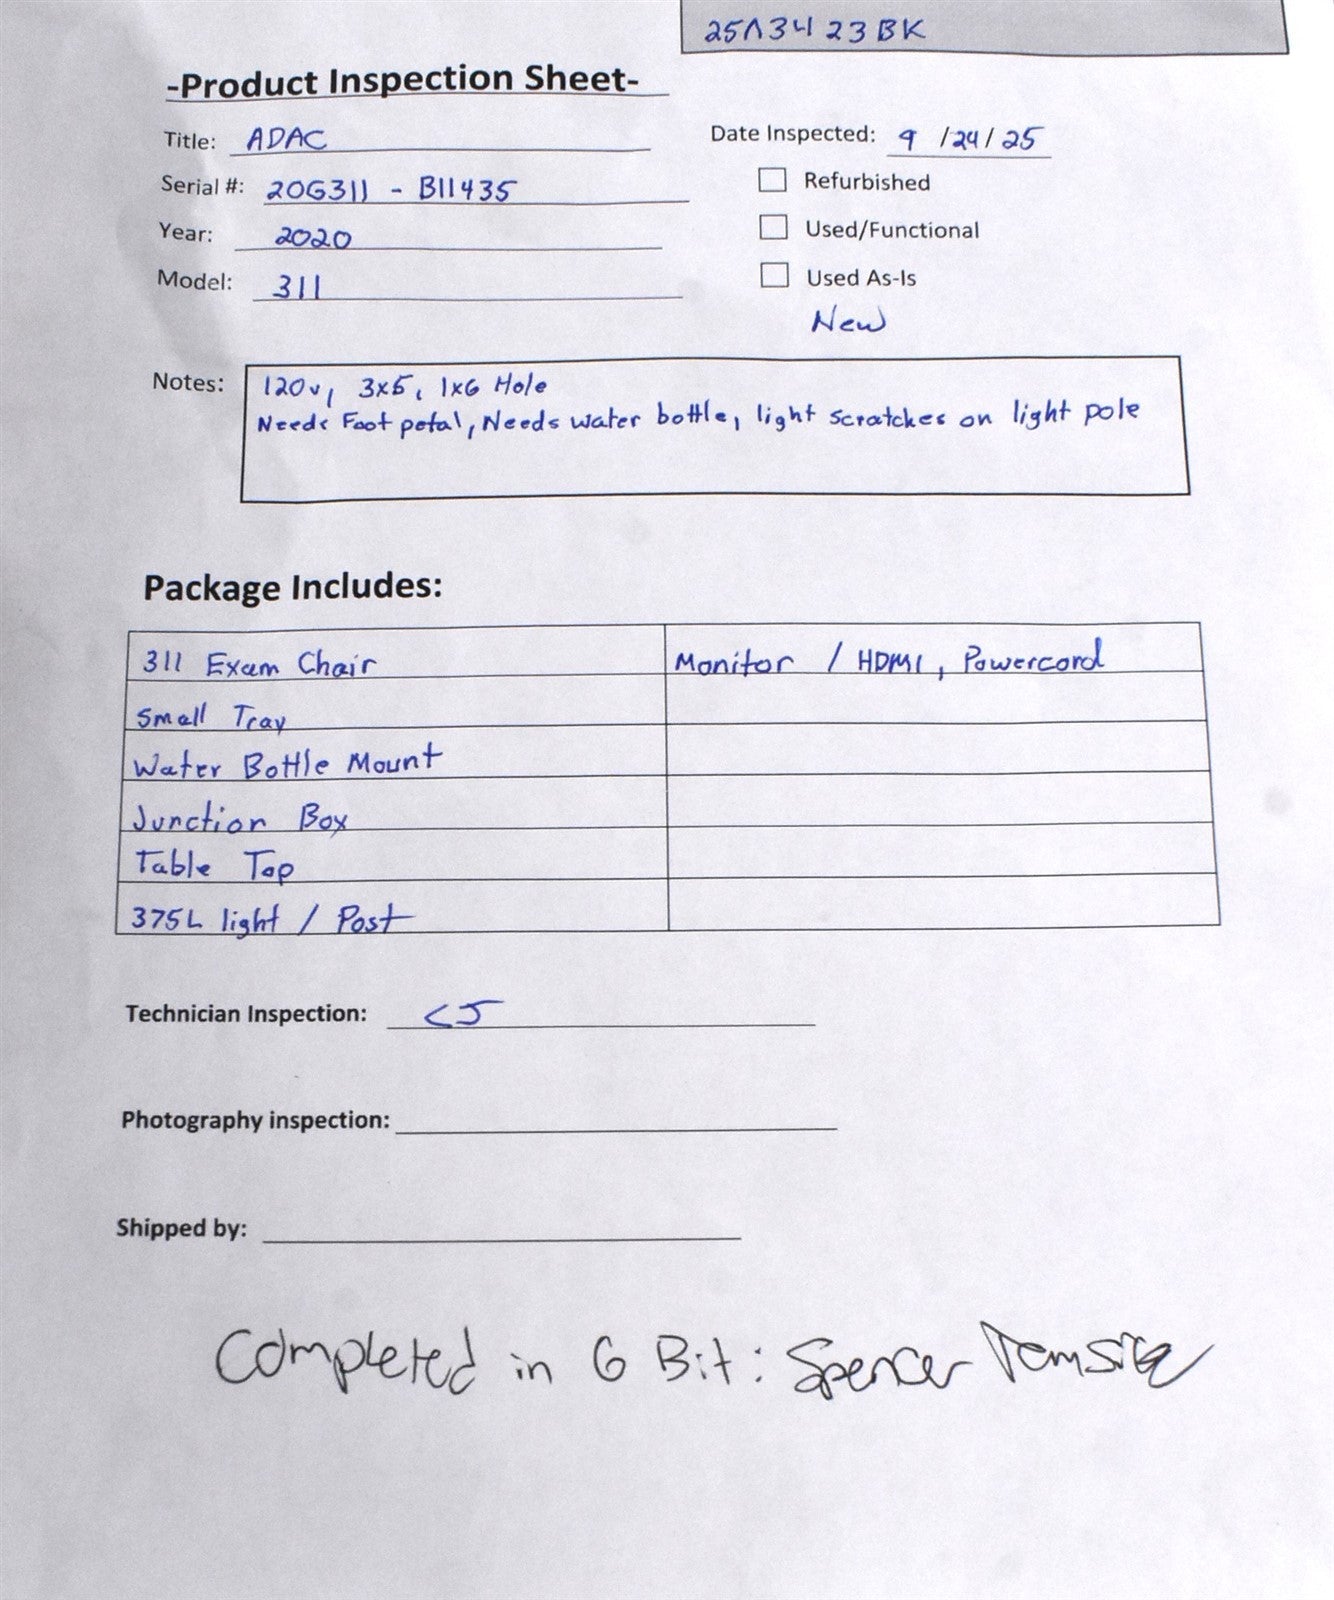 25A3423BK
-Product Inspection Sheet-
Title: ADAC
Date Inspected: 9/24/25
Serial #: 20G311 - B11435
Refurbished
Year: 2020
Used/Functional
Model: 311
Used As-Is
New
Notes: 120v, 3x5, 1x6 Hole
Needs Foot petal, Needs water bottle, light scratches on light pole
Package Includes:
311 Exam Chair
Monitor / HDMI, Powercord
Small Tray
Water Bottle Mount
Junction Box
Table Top
375L light / Post
Technician Inspection: CJ
Photography inspection:
Shipped by:
Completed in 6 Bit: Spencer